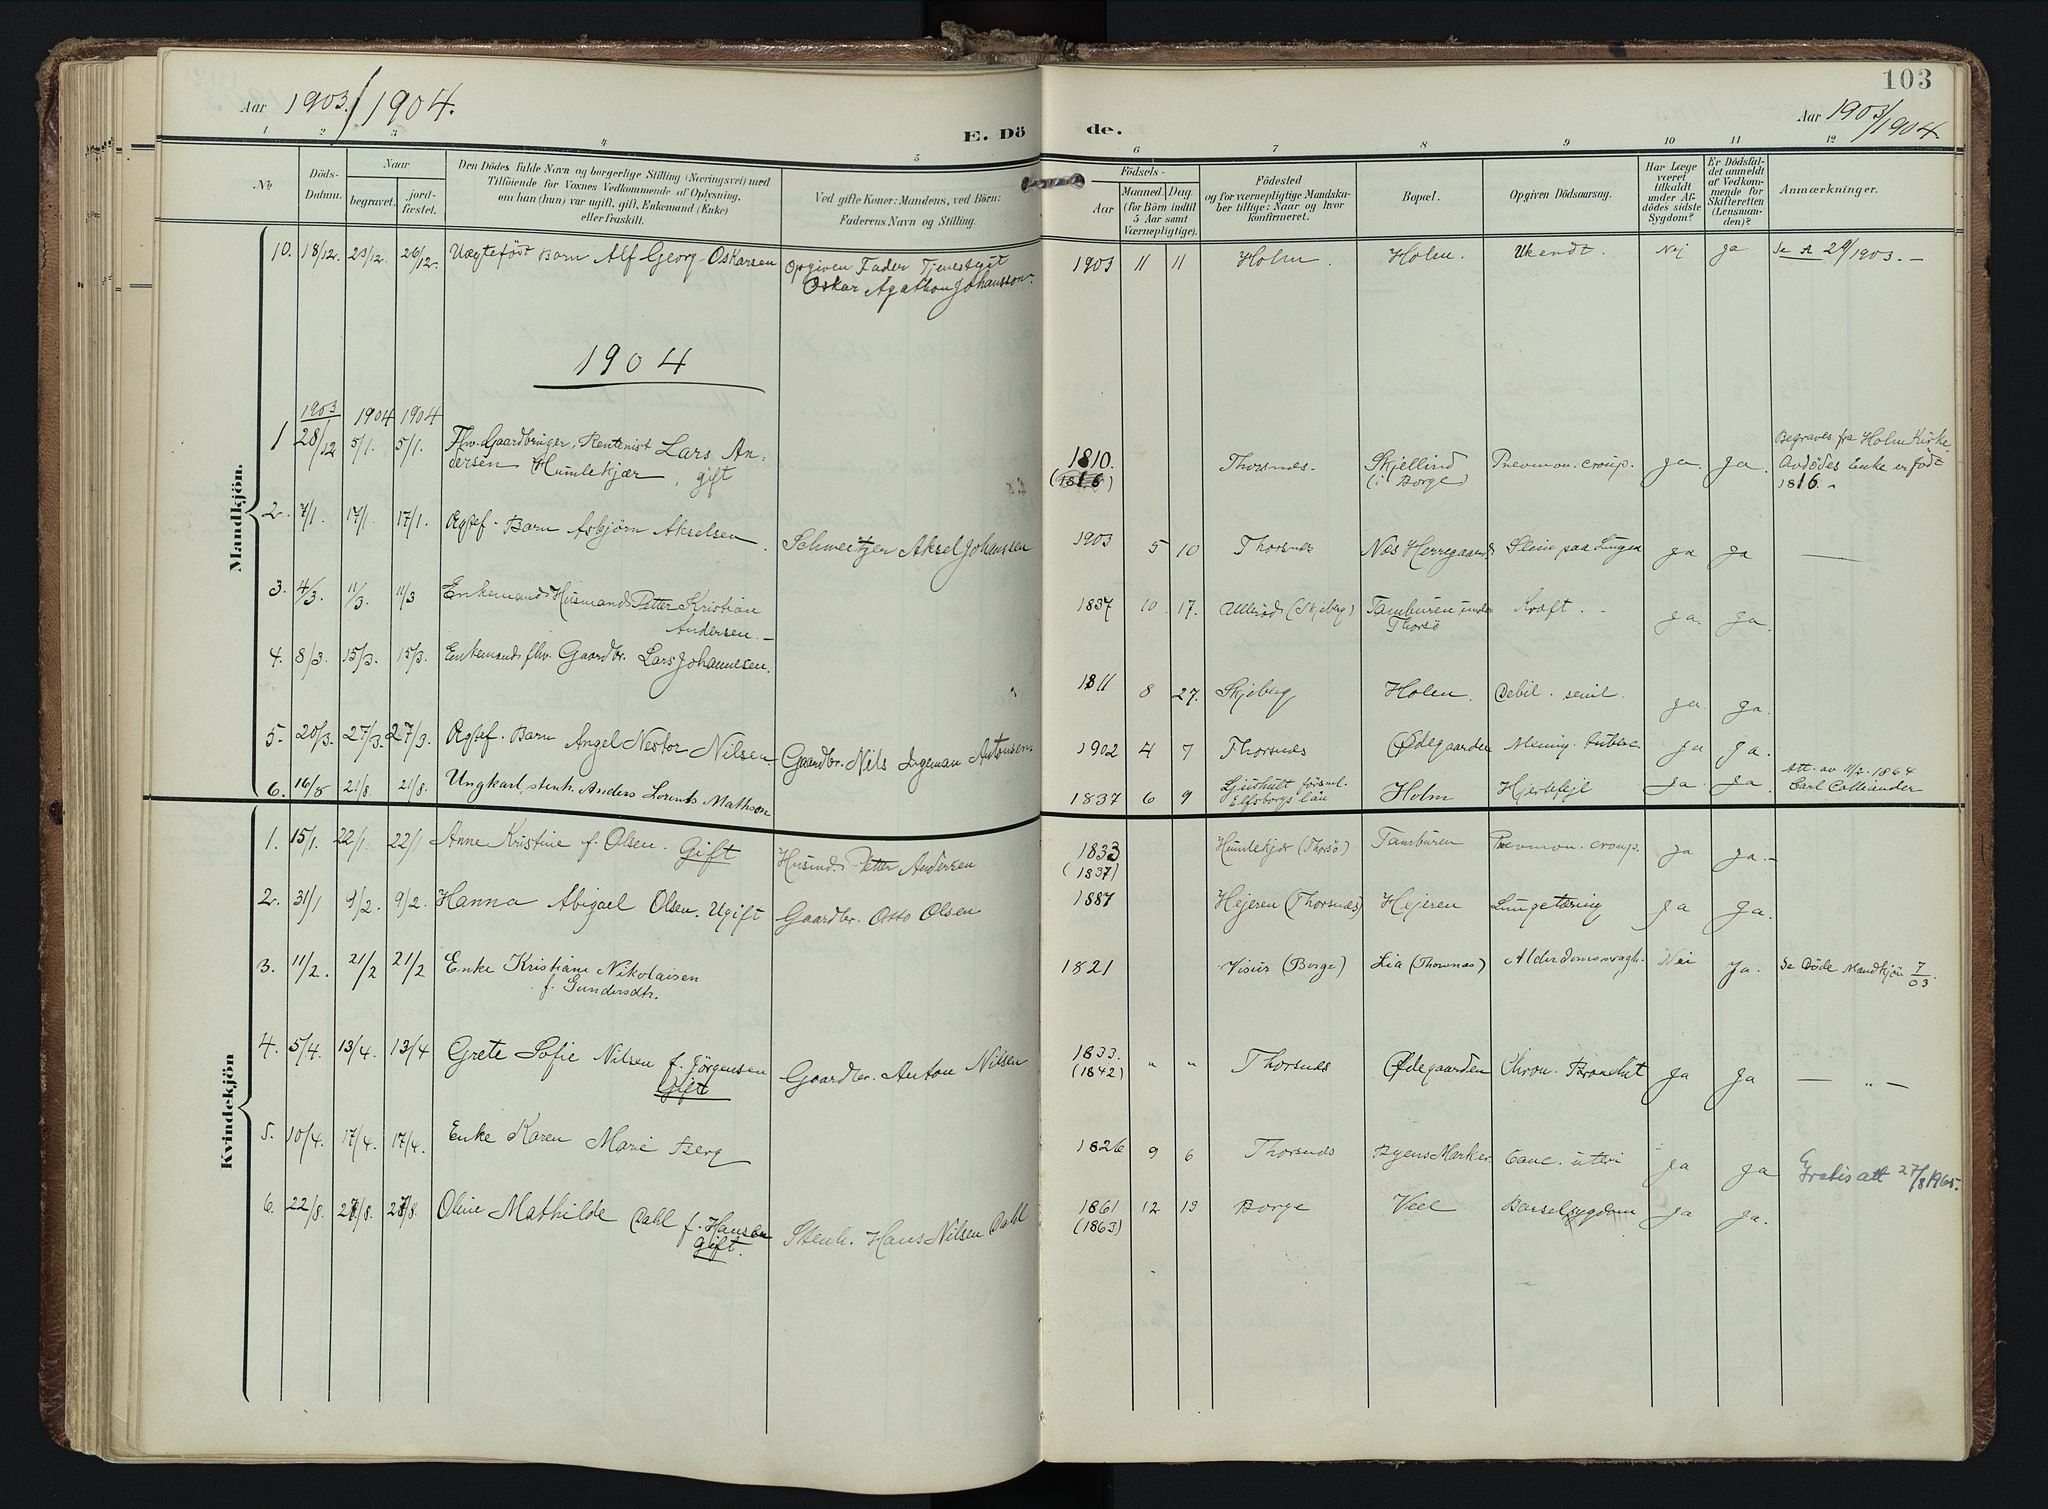 103
Aar 1903/1904.
E. Dö
de.
Aar 1903/1904.
1 2 3 4 5 6 7 8 9 10 11 12
No
Döds-
Datum.
Naar
begravet.
jord-
fæstet.
Den Dödes fulde Navn og borgerlige Stilling (Næringsvei) med
Tilföiende for Voxnes Vedkommende af Oplysning,
om han (hun) var ugift, gift, Enkemand (Enke)
eller fraskilt.
Ved gifte Koner: Mandens, ved Börn:
Faderens Navn og Stilling.
Födsels-
Aar
Maaned.
Dag.
(for Börn indtil
5 Aar samt
Værnepligtige).
Födested
og for værnepligtige Mandska-
ber tillige: Naar og hvor
konfirmeret.
Bopæl.
Opgiven Dödsaarsag.
Har Læge
været
tilkaldt
under Af-
dödes sidste
Sygdom?
Er Dödsfal-
det anmeldt
af Vedkom-
mende for
Skifteretten
(Lensman-
den)?
Anmærkninger.
Mandkjön.
10. 18/12. 23/12. 26/12. Uægtefödt Barn Alf Georg Oskarsen Opgiven Fader Tjenestgut
Oskar Agathon Johansson. 1903 11 11 Holm. Holm. Ukendt. Nej Ja Se A 29/1903. –
1904
1903 1904 1904
1 28/12 5/1. 5/1. Fhv. Gaardbruger, Rentenist Lars An-
dersen Humlekjær, gift 1810. (1816) Thorsnes. Skjellind
(i Borge) Pnevmon. croup. Ja. Ja. Begraves fra Holm Kirke
Avdödes Enke er födt
1816.
2. 7/1. 17/1. 17/1. Ægtef. Barn Asbjörn Akselsen. Schweitzer Aksel Johanssen 1903 5 10 Thorsnes Næs Herregaard Sleim paa Lungen Ja Ja —
3. 4/3. 11/3. 11/3 Enkemand Husmand Petter Kristian
Andersen. – 1837 10 17. Ullerød (Skjeberg) Tamburen under
Thorsö Kræft. Ja. Ja.
4. 8/3. 15/3. 15/3. Enkemand fhv. Gaardbr. Lars Johannesen. 1811 8 27. Skjeberg Holm. Debil. senil. Ja. Ja.
5. 20/3. 27/3. 27/3. Ægtef. Barn Angel Nestor Nilsen. Gaardbr. Nils Ingeman Antonsen 1902 4 7 Thorsnes Ødegaarden Mening. tuberc. Ja Ja.
6. 16/8 21/8. 21/8. Ungkarl, stenh. Anders Lorents Mathson 1837 6 9 Ljushult förs.
Elfsborgs län Holm Hjertefejl Ja. Ja. Att. av 11/2. 1864
Carl Colliander
Kvindekjön
1. 15/1. 22/1. 22/1 Anne Kristine f. Olsen. Gift Husmd. Petter Andersen 1833
(1837) Humlekjær (Thorsö) Tamburen Pnevmon. croup. Ja Ja. –
2. 31/1 9/2. 9/2. Hanna Abigael Olsen. Ugift Gaardbr. Otto Olsen 1887 Hejeren (Thorsnes) Hejeren Lungetæring Ja Ja.
3. 11/2. 21/2 21/2 Enke Kristiane Nikolaisen
f. Gundersdtr. 1821 Visur (Borge) Lia (Thorsnes) Alderdomssvagh. Nei Ja. Se Döde Mandkjön 7/03
4. 5/4. 13/4. 13/4 Grete Sofie Nilsen f. Jörgensen
Gift Gaardbr. Anton Nilsen 1833.
(1842) " " Thorsnes Ødegaarden Chron. Bronchit Ja Ja — " —
5. 10/4. 17/4. 17/4. Enke Karen Marie Berg 1826 9 6 Thorsnes Byens Marker. Canc. uteri Ja Ja Gratis att 27/8 1965.
6. 22/8. 28/8. 28/8. Oline Mathilde Dahl f. Hansen
gift. Stenh. Hans Nilsen Dahl 1861
(1863) 12 13 Borge Veel Barselsygdom Ja Ja.